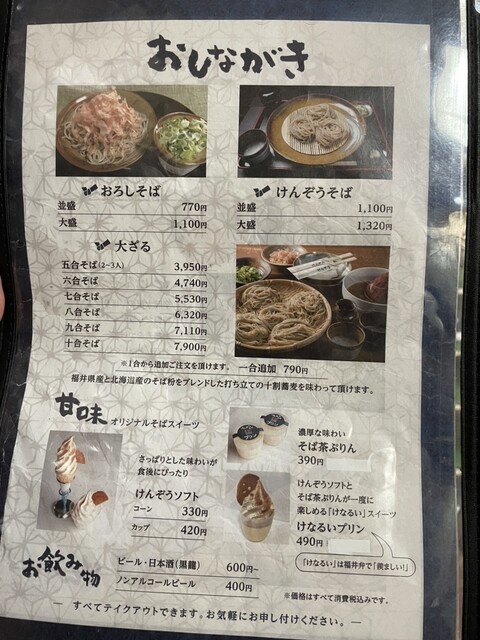 おしながき
おろしそば
並盛 770円
大盛 1,100円
けんぞうそば
並盛 1,100円
大盛 1,320円
大ざる
五合そば(2~3人) 3,950円
六合そば 4,740円
七合そば 5,530円
八合そば 6,320円
九合そば 7,110円
十合そば 7,900円
※1合から追加ご注文を頂けます。 一合追加 790円
福井県産と北海道産のそば粉をブレンドした打ち立ての十割蕎麦を味わって頂けます。
甘味 オリジナルそばスイーツ
さっぱりとした味わいが
食後にぴったり
けんぞうソフト
コーン 330円
カップ 420円
濃厚な味わい
そば茶ぷりん
390円
けんぞうソフトと
そば茶ぷりんが一度に
楽しめる「けなるい」スイーツ
けなるいプリン
490円
「けなるい」は福井弁で「羨ましい!」
お飲み物
ビール・日本酒(黒龍) 600円~
ノンアルコールビール 400円
※価格はすべて消費税込みです。
― すべてテイクアウトできます。お気軽にお申し付けください。 ―